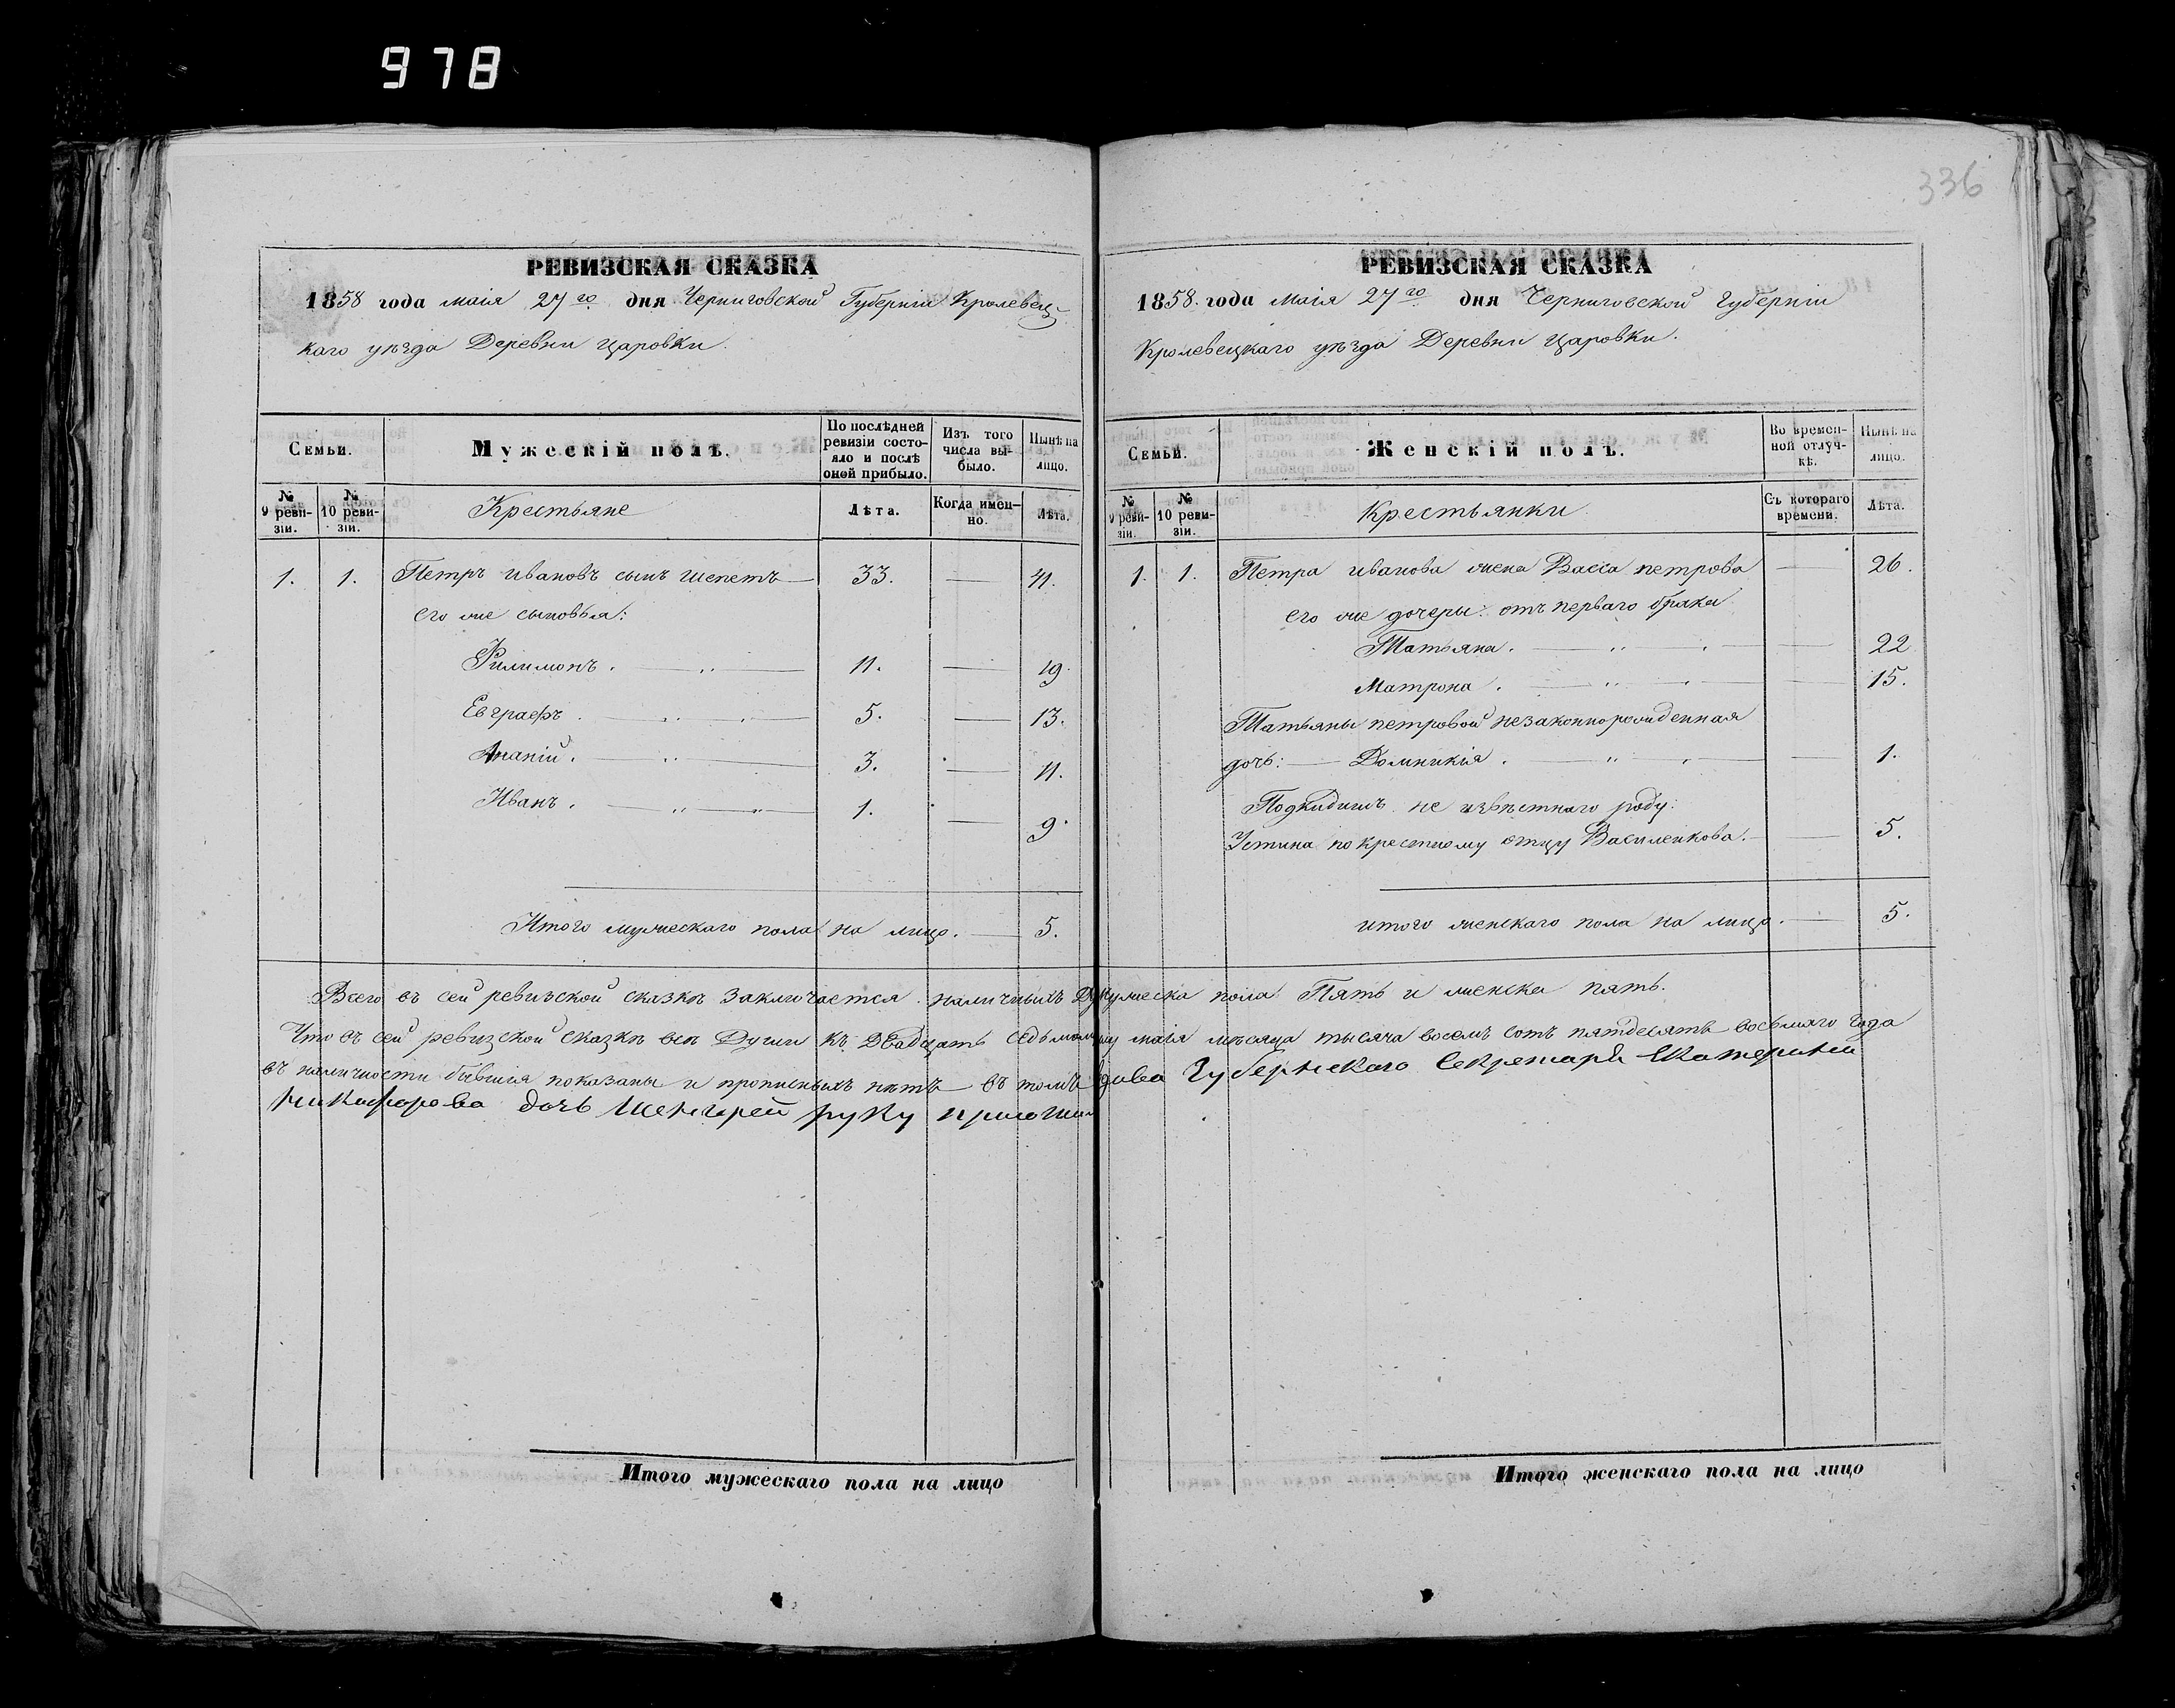 978
336
РЕВИЗСКАЯ СКАЗКА
1858 года маія 27го дня Черниговской Губерніи Кролевец-
каго уѣзда Деревни Царовки.
Семьи.
Мужескій полъ.
По послѣдней ревизіи состояло и послѣ оной прибыло.
Изъ того числа выбыло.
Нынѣ на лицо.
№ 9 ревизіи.
№ 10 ревизіи.
Крестьяне
Лѣта.
Когда именно.
Лѣта.
1. 1. Петръ Ивановъ сынъ Шепетъ 33. 41.
его же сыновья:
Филимонъ. 11. 19.
Евграфъ. 5. 13.
Ананій. 3. 11.
Иванъ. 1. 9.
Итого мужескаго пола на лицо. 5.
РЕВИЗСКАЯ СКАЗКА
1858 года маія 27го дня Черниговской Губерніи
Кролевецкаго уѣзда Деревни Царовки.
Семьи.
Женскій полъ.
Во временной отлучкѣ.
Нынѣ на лицо.
№ 9 ревизіи.
№ 10 ревизіи.
Крестьянки
Съ котораго времени.
Лѣта.
1. 1. Петра Иванова жена Васса петрова 26.
его же дочеры: отъ перваго брака
Татьяна. 22
Матрона. 15.
Татьяны петровой незаконнорожденная
дочь: Домникія. 1.
Подкидишъ не извѣстнаго роду:
Устина по крестному отцу Василенкова. 5.
итого женскаго пола на лицо. 5.
Всего въ сей ревизской сказкѣ заключается наличныхъ мужеска пола Пять и женска пять.
Что въ сей ревизской сказкѣ всѣ Души къ двадцать седьмому маія мѣсяца тысяча восемъ сотъ пятдесятъ восьмаго года
въ наличности бывшія показаны и прописныхъ нѣтъ въ томъ вдова Губернскаго Секретаря Екатерина
Никифорова дочь руку приложила
Итого мужескаго пола на лицо
Итого женскаго пола на лицо